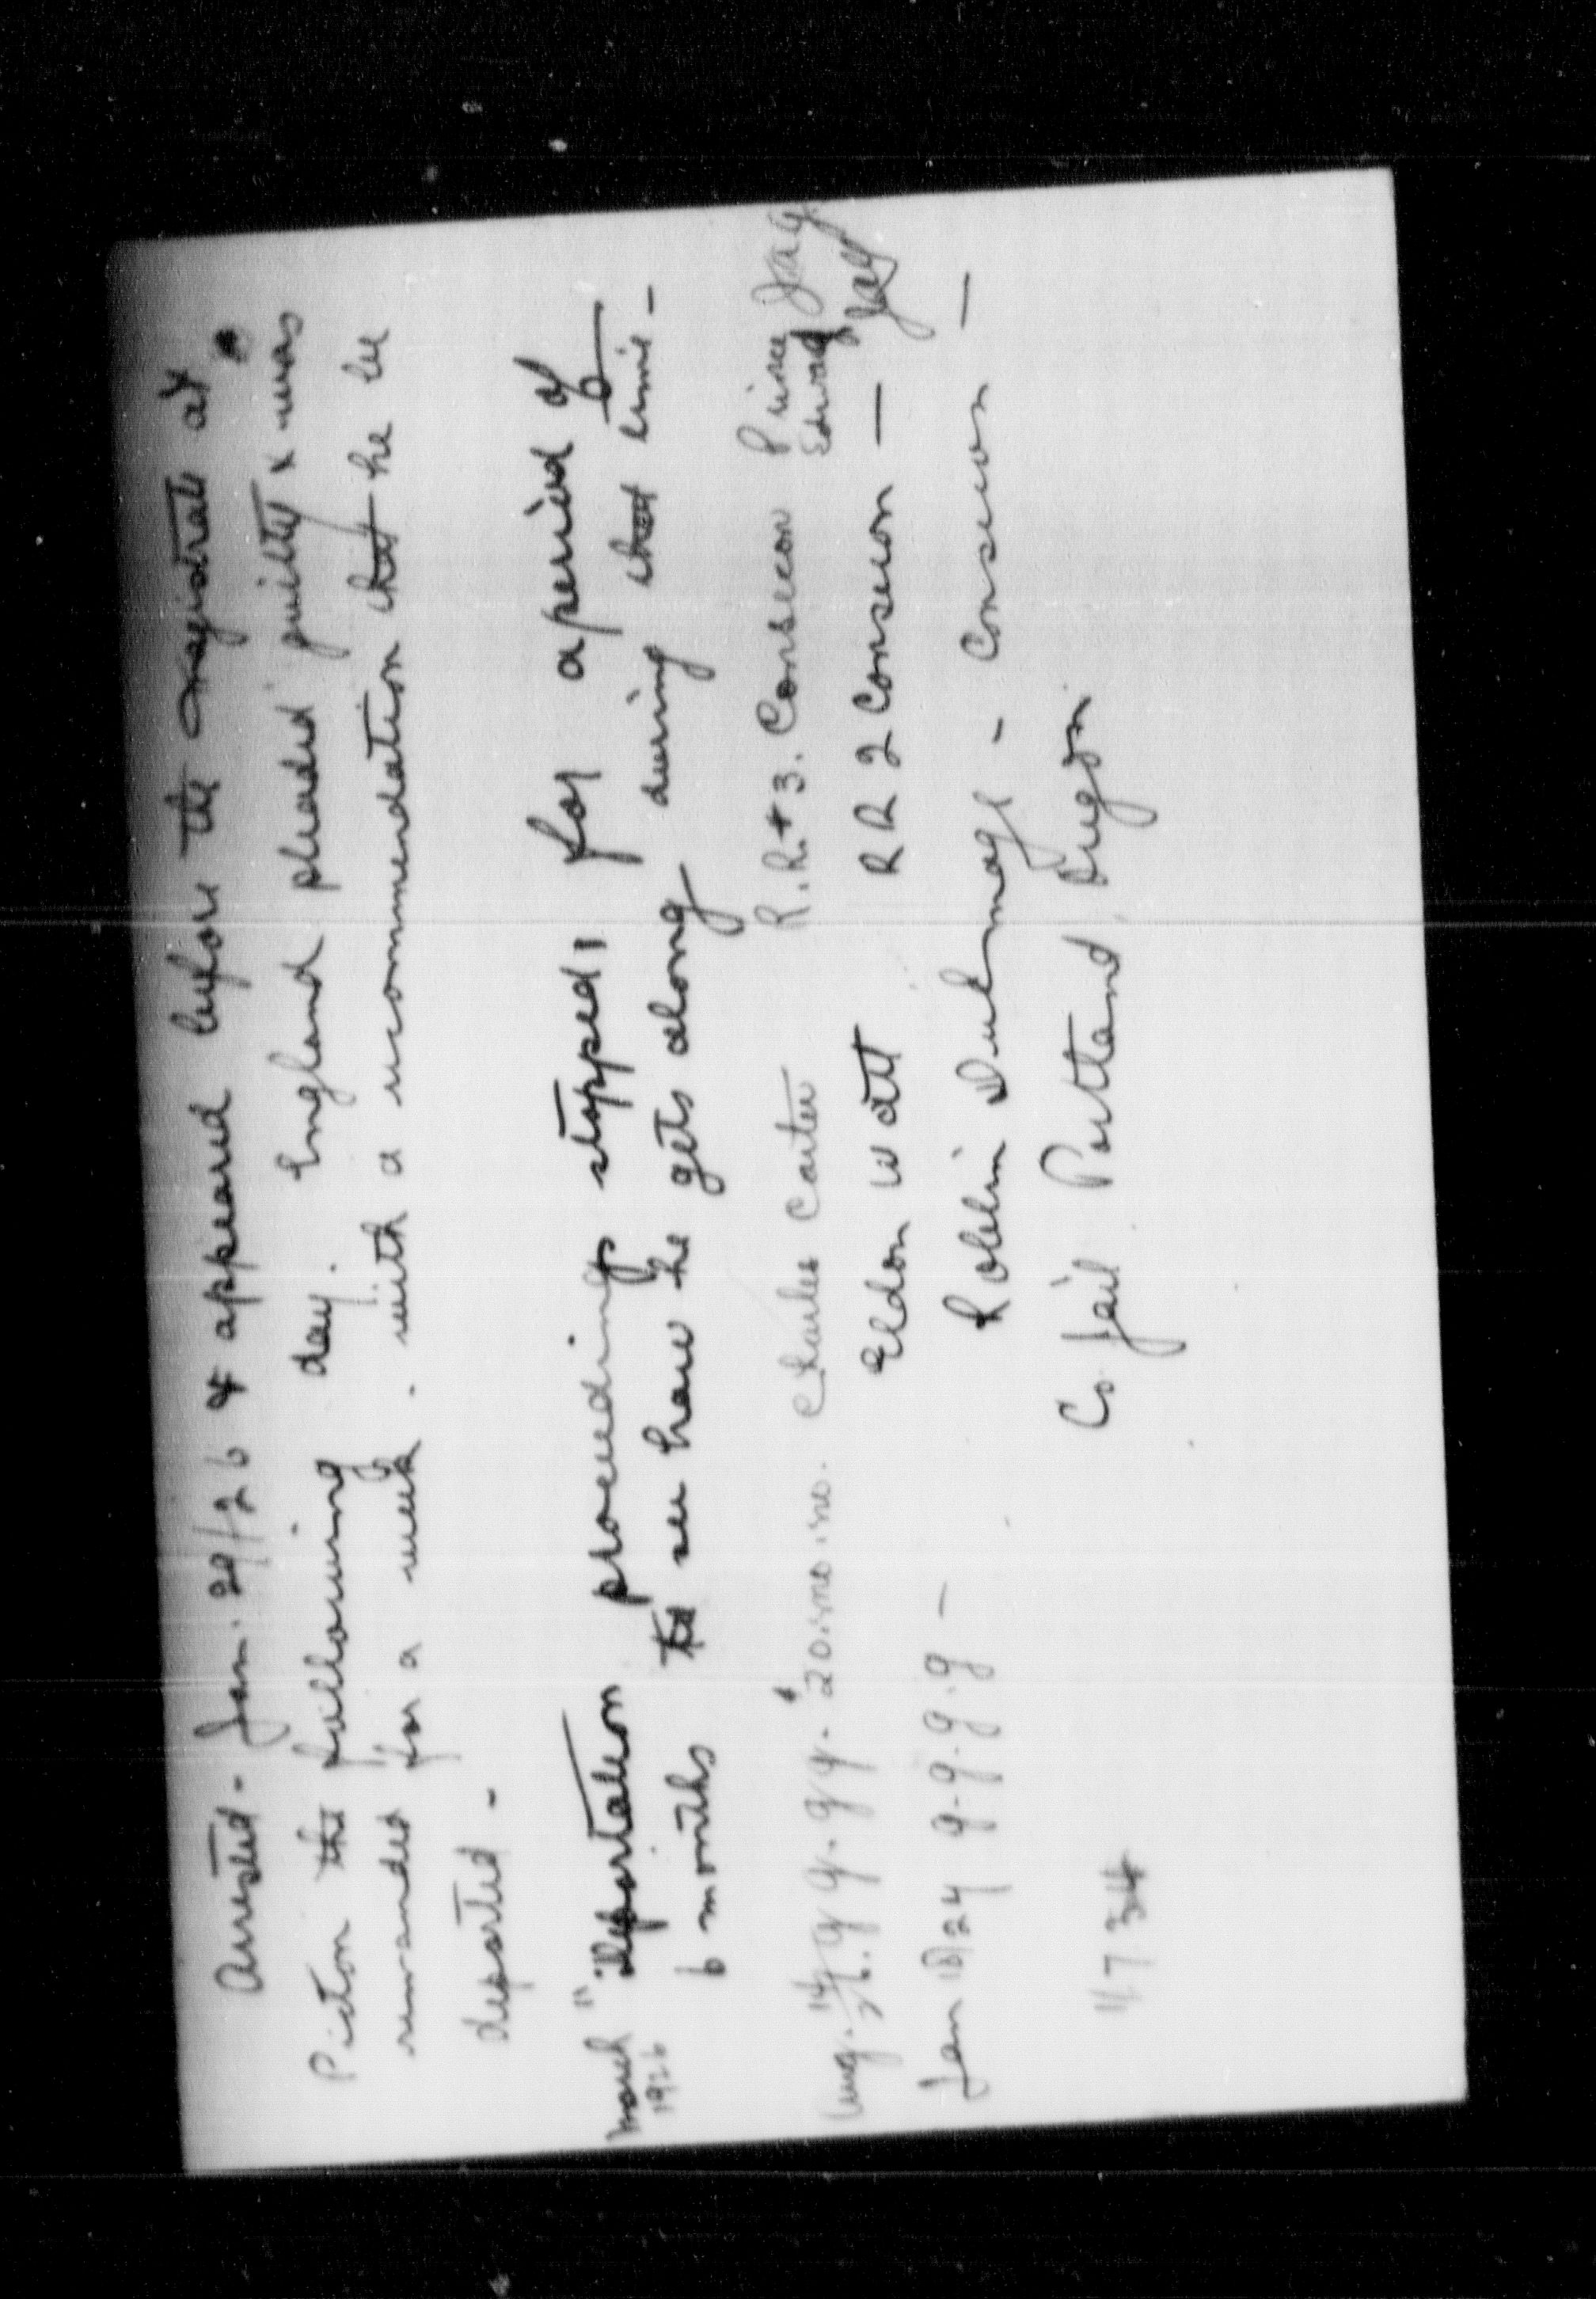 Arrested - Jan. 29/26 & appeared before the magistrate at
Picton the following day. England pleaded guilty & was
remanded for a week. with a recommendation that he be
deported -
March 11 1926 "Deportation proceedings stopped, for a period of
6 months to see how he gets along during that time -
Aug. 14/26. g. g. g. g. 20. Charles Carter R.R. # 3. Consecon Prince Edward
Jan 18/24 g. g. g. g. g - Eldon Watt RR 2 Consecon -
Roblin Dulmage - Consecon -
Co. Jail Portland, Oregon
1/7 34